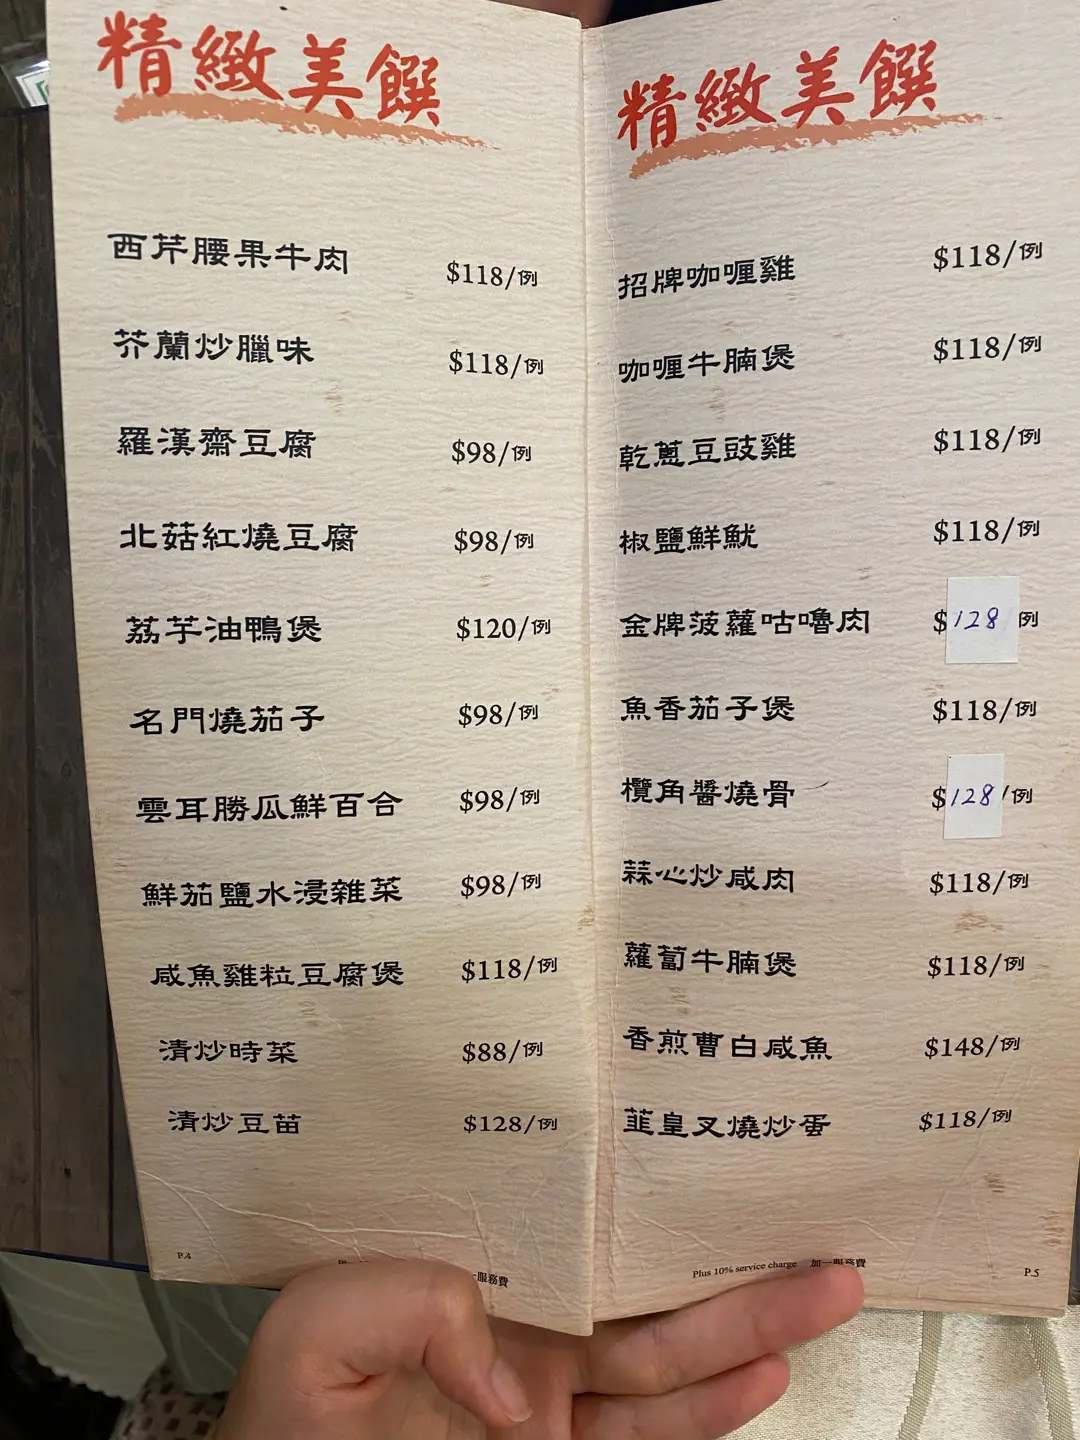 精緻美饌
西芹腰果牛肉 $118/例
芥蘭炒臘味 $118/例
羅漢齋豆腐 $98/例
北菇紅燒豆腐 $98/例
荔芋油鴨煲 $120/例
名門燒茄子 $98/例
雲耳勝瓜鮮百合 $98/例
鮮茄鹽水浸雜菜 $98/例
咸魚雞粒豆腐煲 $118/例
清炒時菜 $88/例
清炒豆苗 $128/例
P.4
一服務費
精緻美饌
招牌咖喱雞 $118/例
咖喱牛腩煲 $118/例
乾蔥豆豉雞 $118/例
椒鹽鮮魷 $118/例
金牌菠蘿咕嚕肉 $128 例
魚香茄子煲 $118/例
欖角醬燒骨 $128/例
蒜心炒咸肉 $118/例
蘿蔔牛腩煲 $118/例
香煎曹白咸魚 $148/例
韮皇叉燒炒蛋 $118/例
Plus 10% service charge 加一服務費
P.5